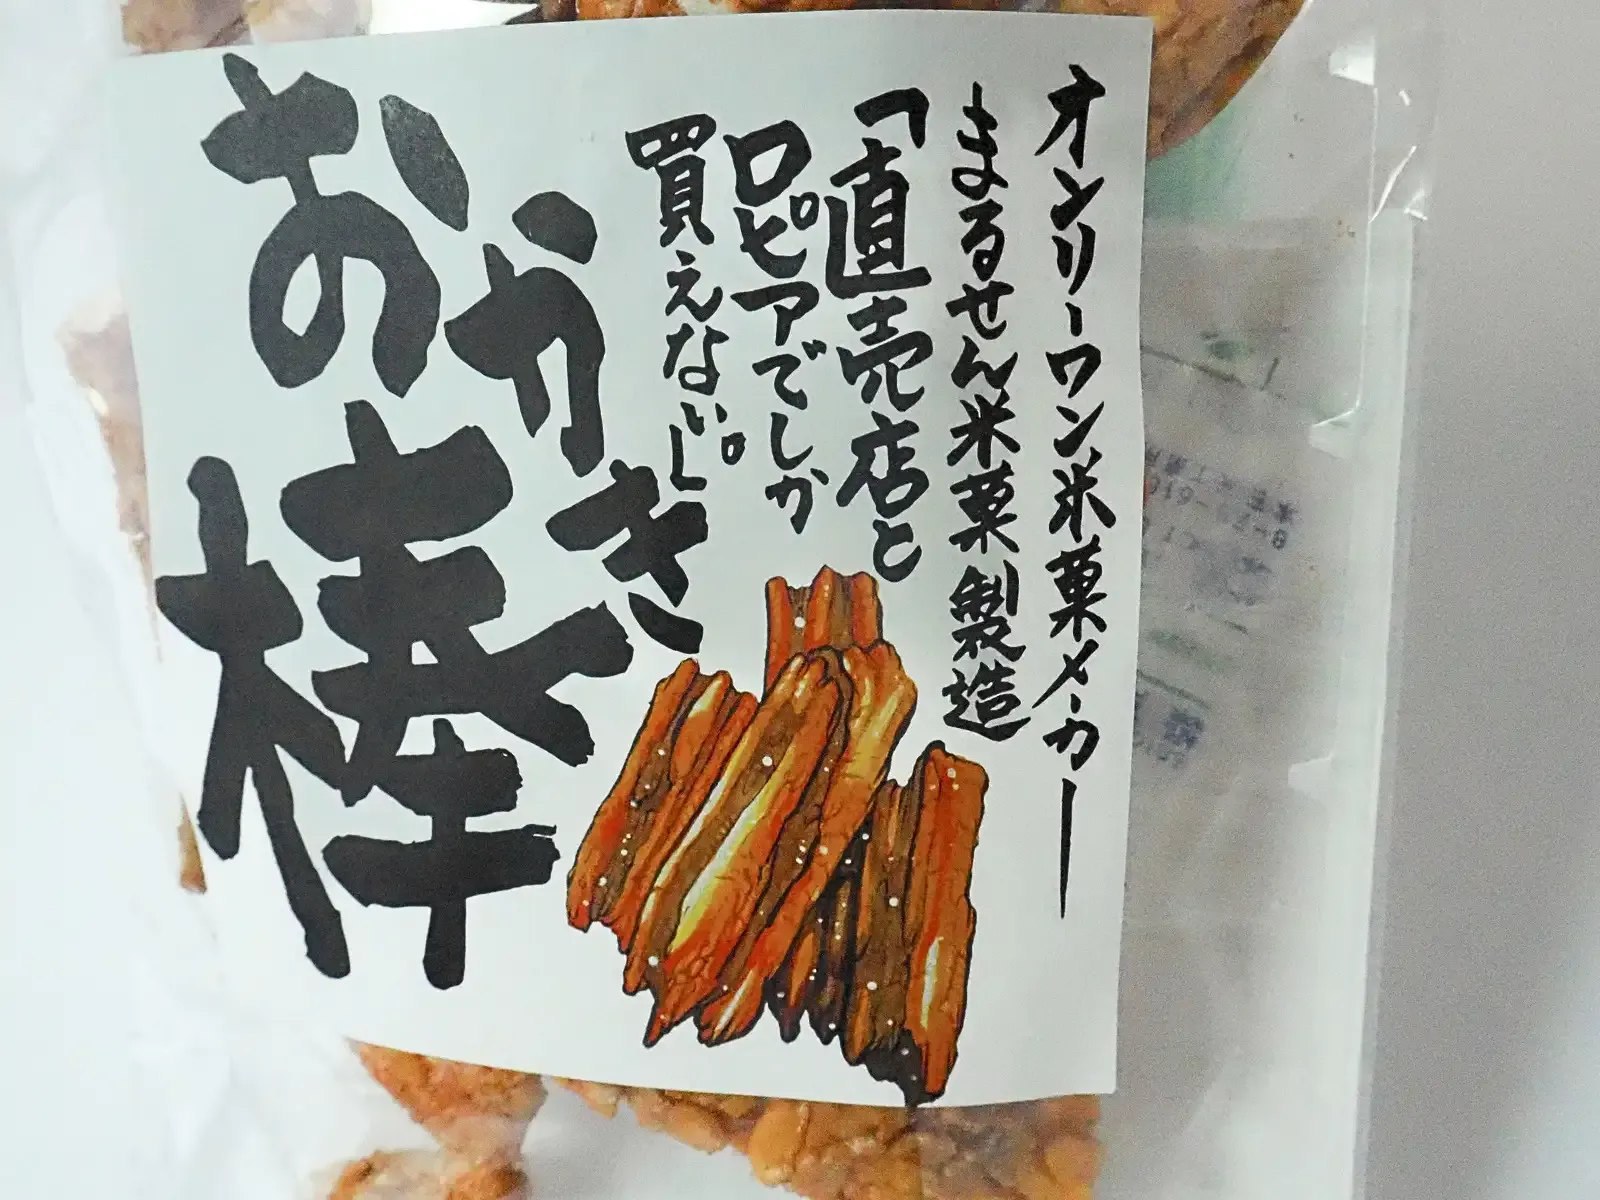 オンリーワン米菓メーカー
まるせん米菓製造
「直売店と
ロピアでしか
買えない。」
おかき
棒